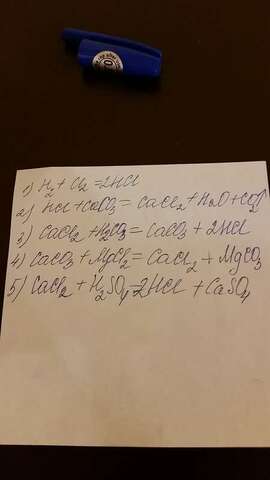 1) H2 + Cl2 = 2HCl
2) HCl + CaCO3 = CaCl2 + H2O + CO2↑
3) CaCl2 + H2CO3 = CaCO3 + 2HCl
4) CaCO3 + MgCl2 = CaCl2 + MgCO3
5) CaCl2 + H2SO4 = 2HCl + CaSO4